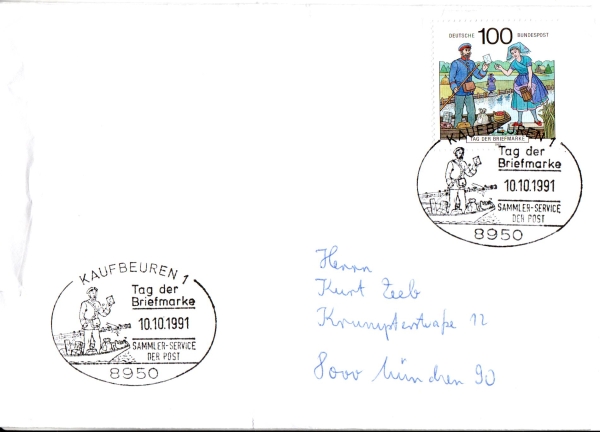 DEUTSCHE 100 BUNDESPOST
TAG DER BRIEFMARKE
KAUFBEUREN 1
Tag der
Briefmarke
10.10.1991
SAMMLER-SERVICE
DER POST
8950
Herrn
Kurt Zeeb
Krumpterstraße 12
8000 München 90
KAUFBEUREN 1
Tag der
Briefmarke
10.10.1991
SAMMLER-SERVICE
DER POST
8950